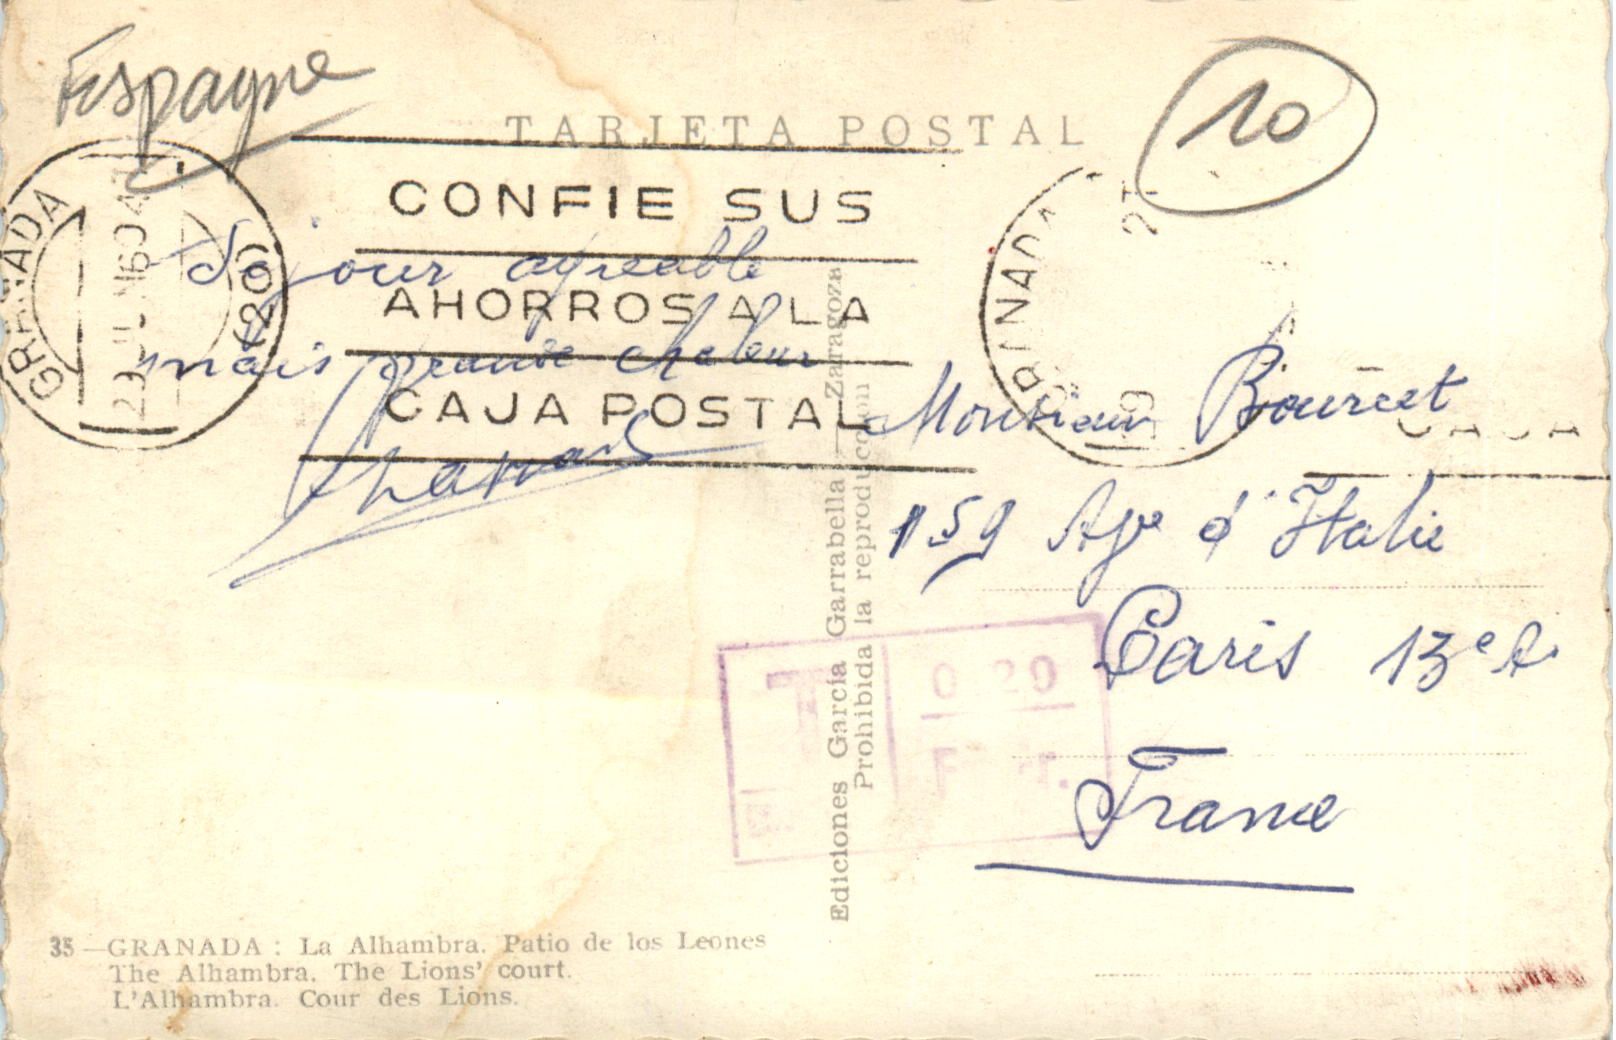 Espagne
TARJETA POSTAL
10
GRANADA
(20)
CONFIE SUS
AHORROS A LA
CAJA POSTAL
GRANADA
CAJA
Séjour agréable
mais grande chaleur
Monsieur Bourcet
159 Ave d'Italie
Paris 13e A.
France
T
0 20
F
Ediciones García Garrabella — Zaragoza
Prohibida la reproducción
35 — GRANADA : La Alhambra. Patio de los Leones
The Alhambra. The Lions' court.
L'Alhambra. Cour des Lions.